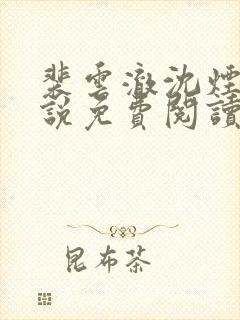 裴雲澈沈煙
說免費閱讀
昆布茶